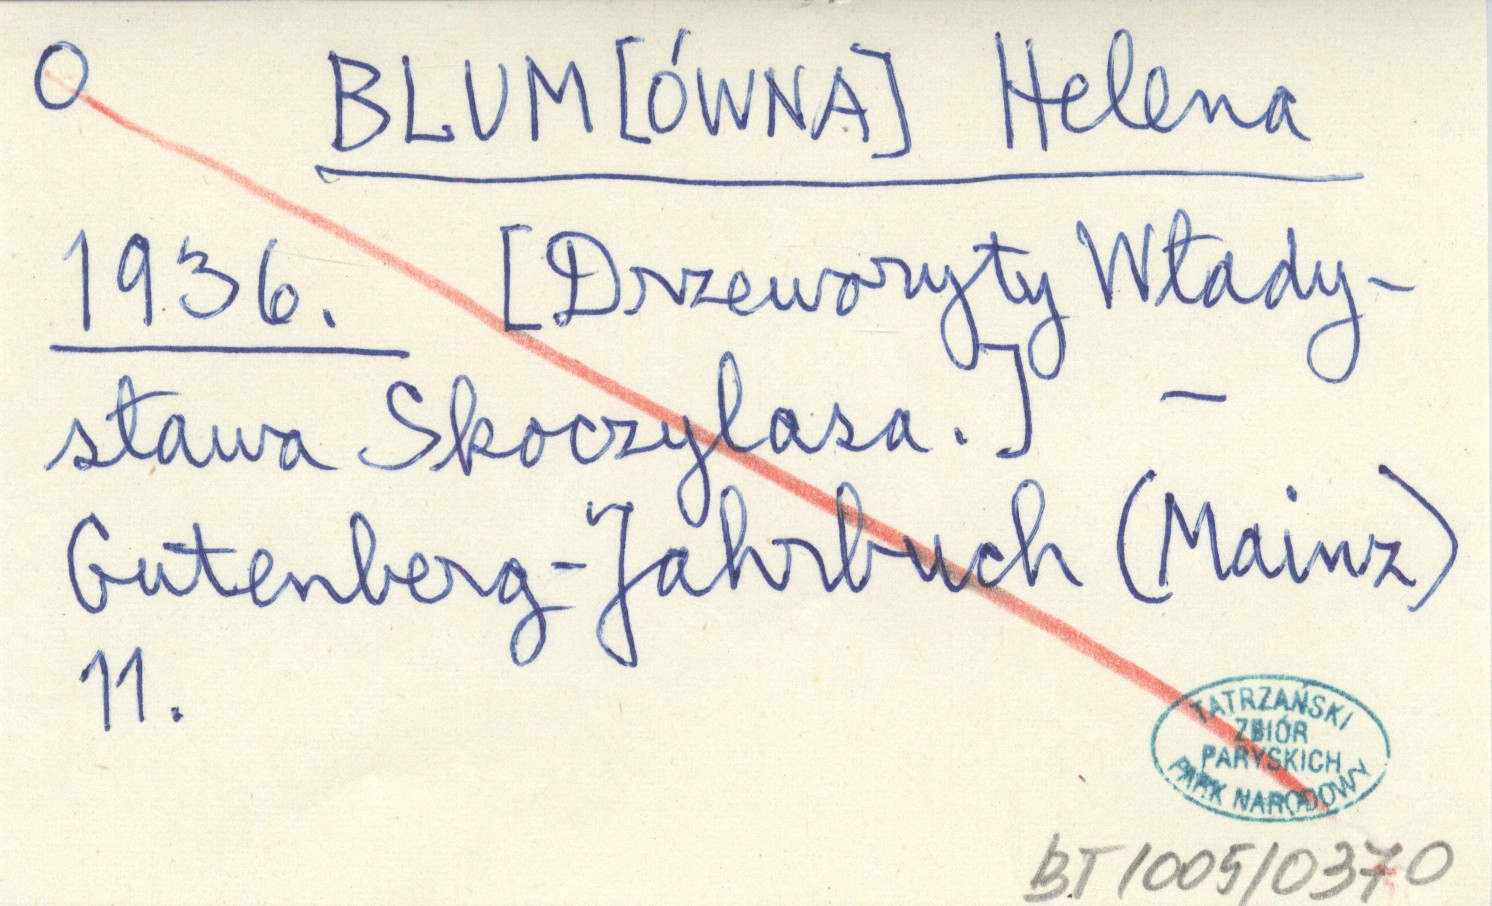 O BLUM[ÓWNA] Helena
1936. [Drzeworyty Włady-
sława Skoczylasa.] —
Gutenberg-Jahrbuch (Mainz)
11.
TATRZAŃSKI
ZBIÓR
PARYSKICH
PARK NARODOWY
BT/005/0370